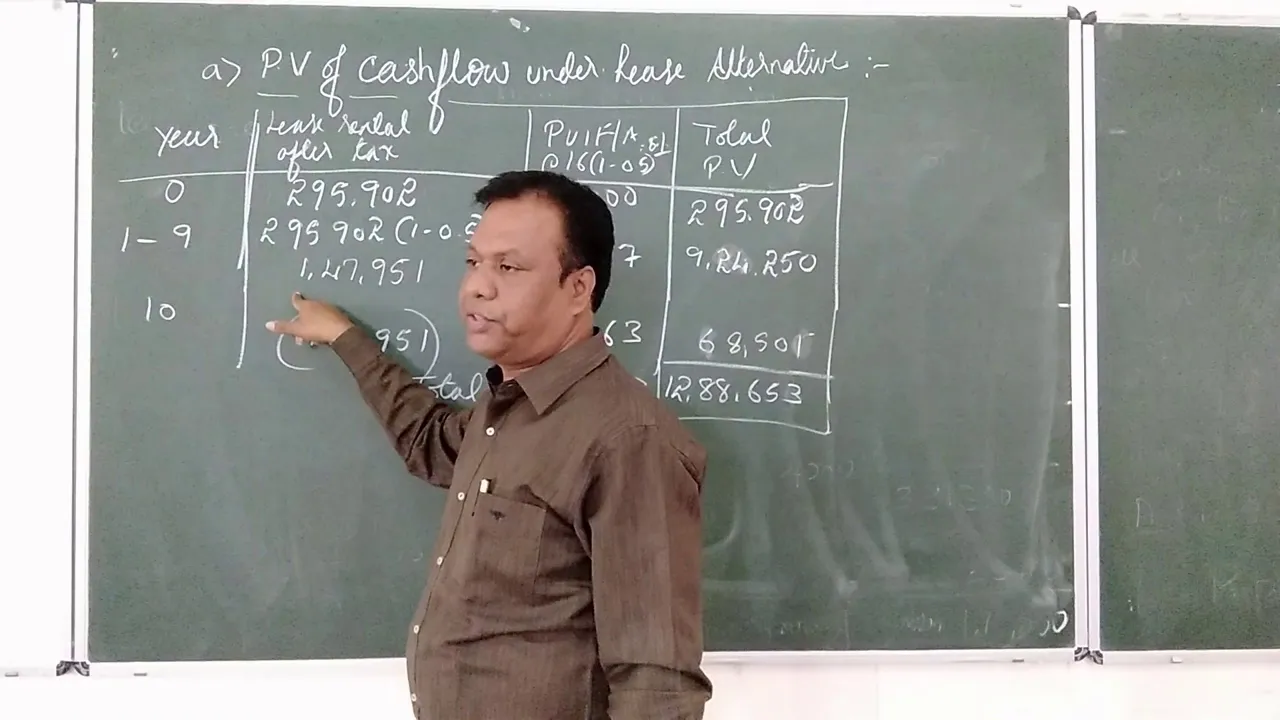 a) P.V of cashflow under Lease Alternative :-
Year Lease rental after tax PVIF/A @16(1-0.5) Total P.V
0 295.902 00 295.902
1-9 295902(1-0.5 7 9,24,250
1,47,951
10 951) 63 68,501
Total 12,88,653